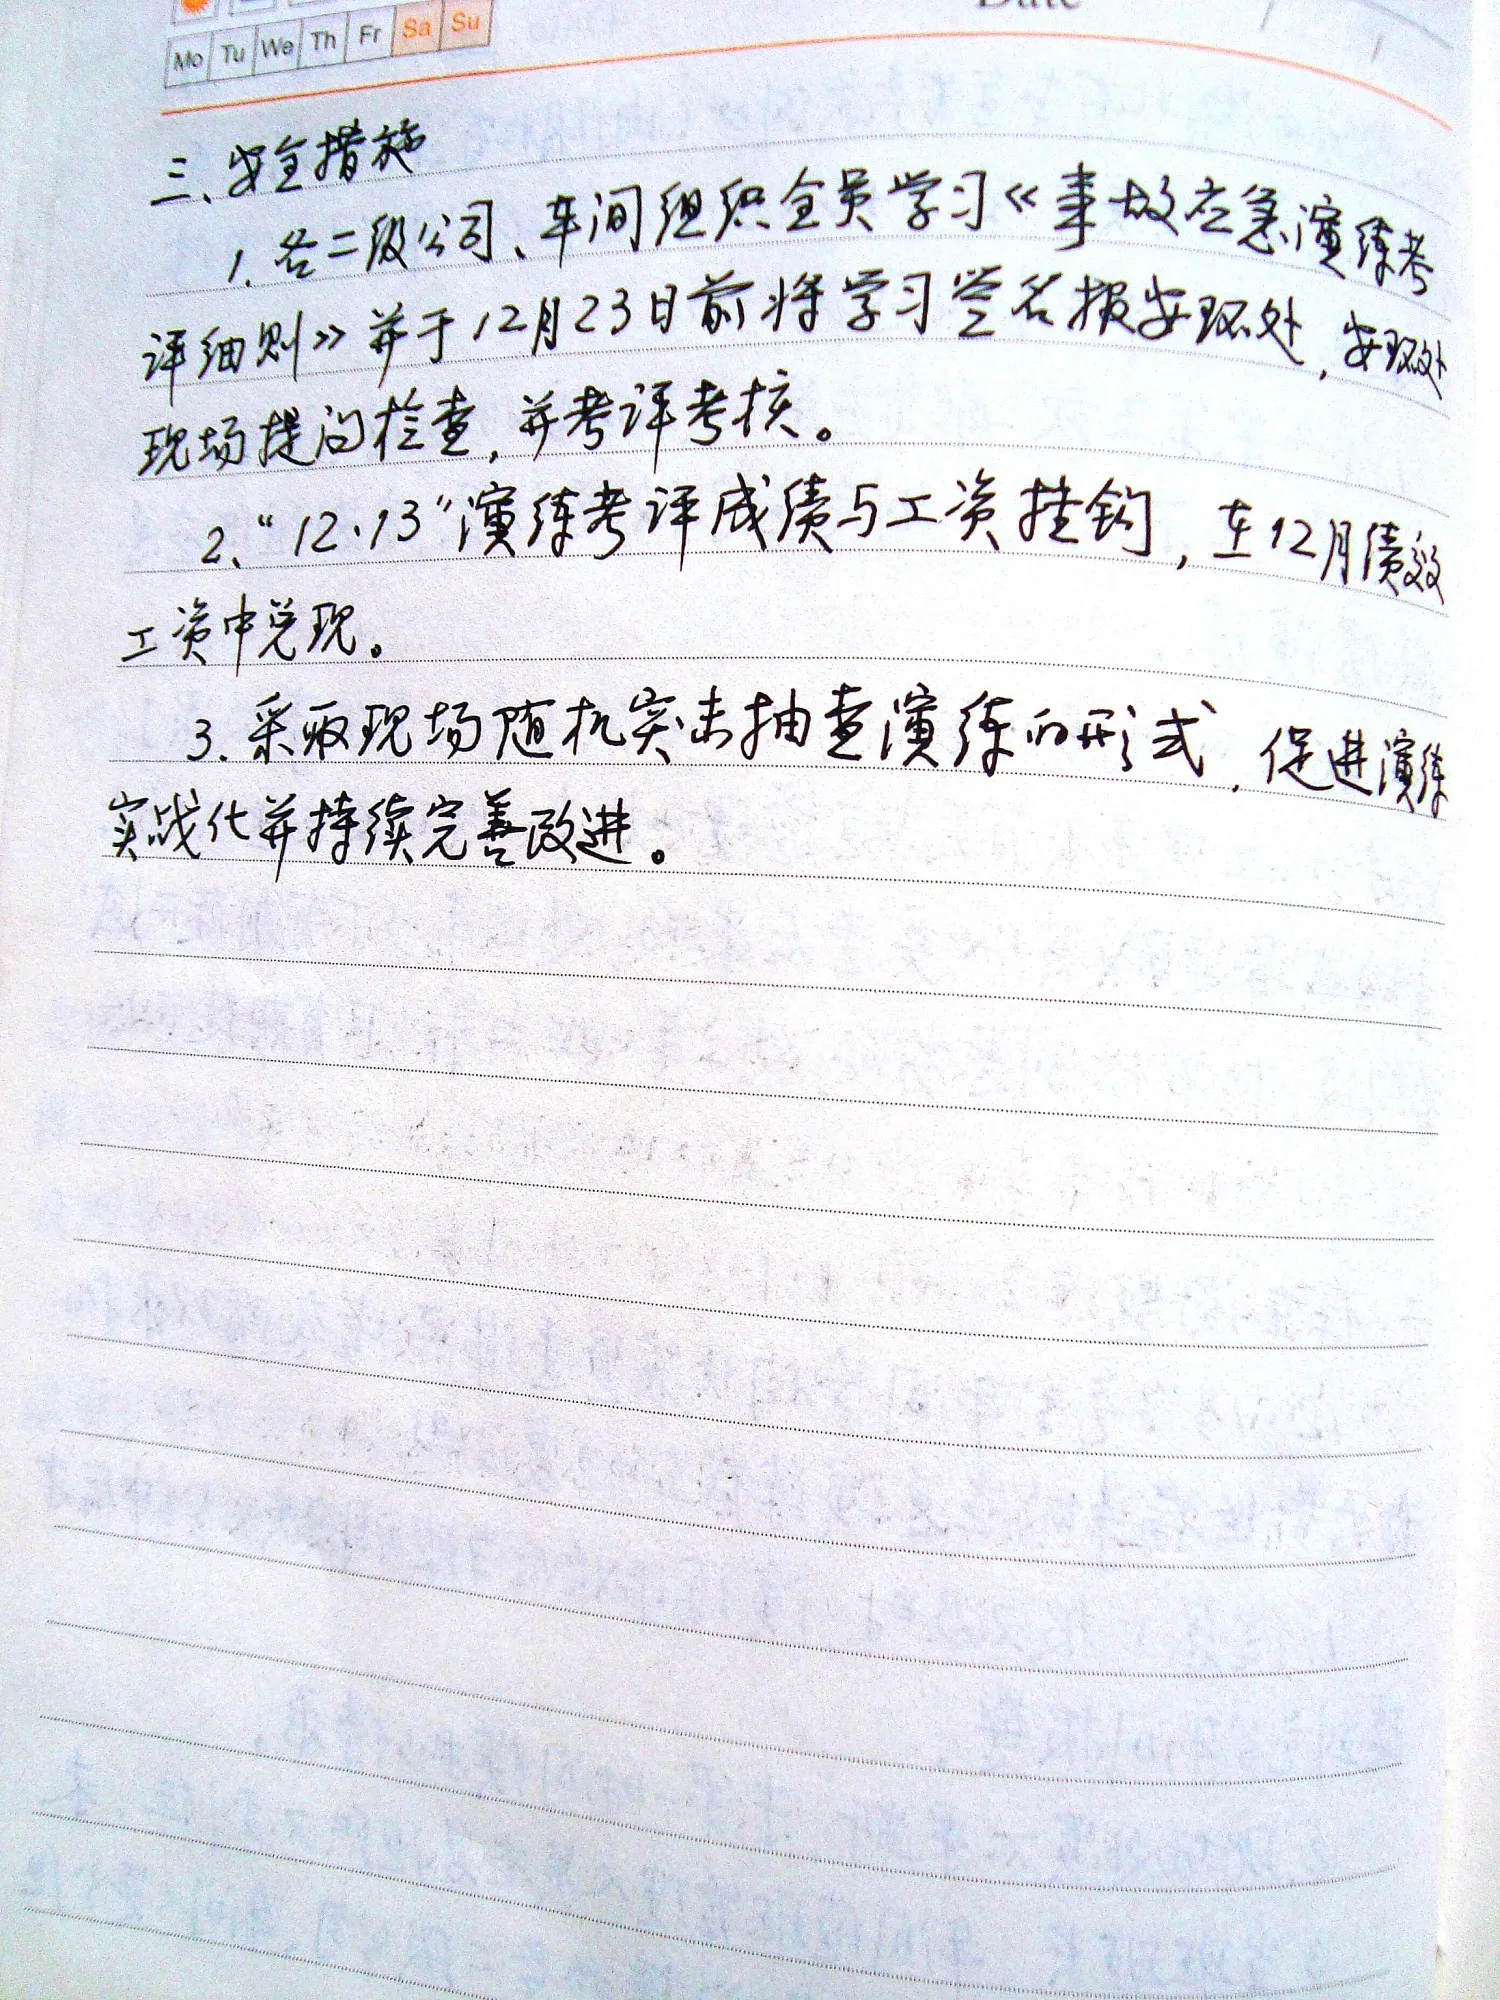 Date
Mo Tu We Th Fr Sa Su
三、安全措施
1. 各二级公司、车间组织全员学习《事故应急演练考
评细则》并于12月23日前将学习签名报安环处，安环处
现场提问检查，并考评考核。
2、“12.13”演练考评成绩与工资挂钩，在12月绩效
工资中兑现。
3. 采取现场随机突击抽查演练的形式，促进演练
实战化并持续完善改进。